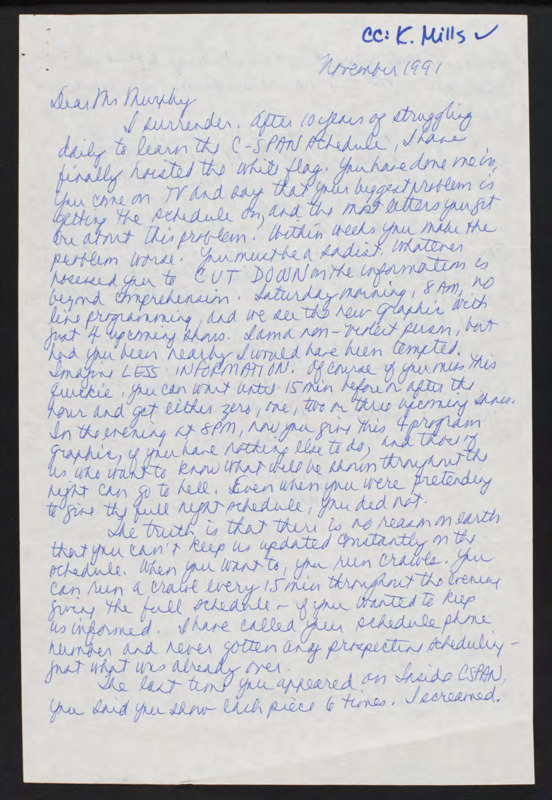 cc: K. Mills ✓
November 1991
Dear Ms Murphy
I surrender. After 10 years of struggling
daily to learn the C-SPAN schedule, I have
finally hoisted the white flag. You have done me in.
You come on TV and say that your biggest problem is
getting the schedule on, and the most letters you get
are about this problem. Within weeks you make the
problem worse. You must be a sadist. Whatever
posessed you to CUT DOWN on the information is
beyond comprehension. Saturday morning, 8 AM, no
live programming, and we see the new graphic with
just 4 upcoming shows. I am a non-violent person, but
had you been nearby I would have been tempted.
Imagine LESS INFORMATION. Of course if you miss this
quickie, you can wait until 15 min before or after the
hour and get either zero, one, two or three upcoming shows.
In the evening at 8 PM, now you give this 4 program
graphic, if you have nothing else to do, and those of
us who want to know what will be shown throughout the
night can go to hell. Even when you were pretending
to give the full night schedule, you did not.
The truth is that there is no reason on earth
that you can't keep us updated constantly on the
schedule. When you want to, you run crawls. You
can run a crawl every 15 min throughout the evening
giving the full schedule - if you wanted to keep
us informed. I have called your schedule phone
number and never gotten any prospective scheduling -
just what was already over.
The last time you appeared on Inside CSPAN,
you said you show each piece 6 times. I screamed.